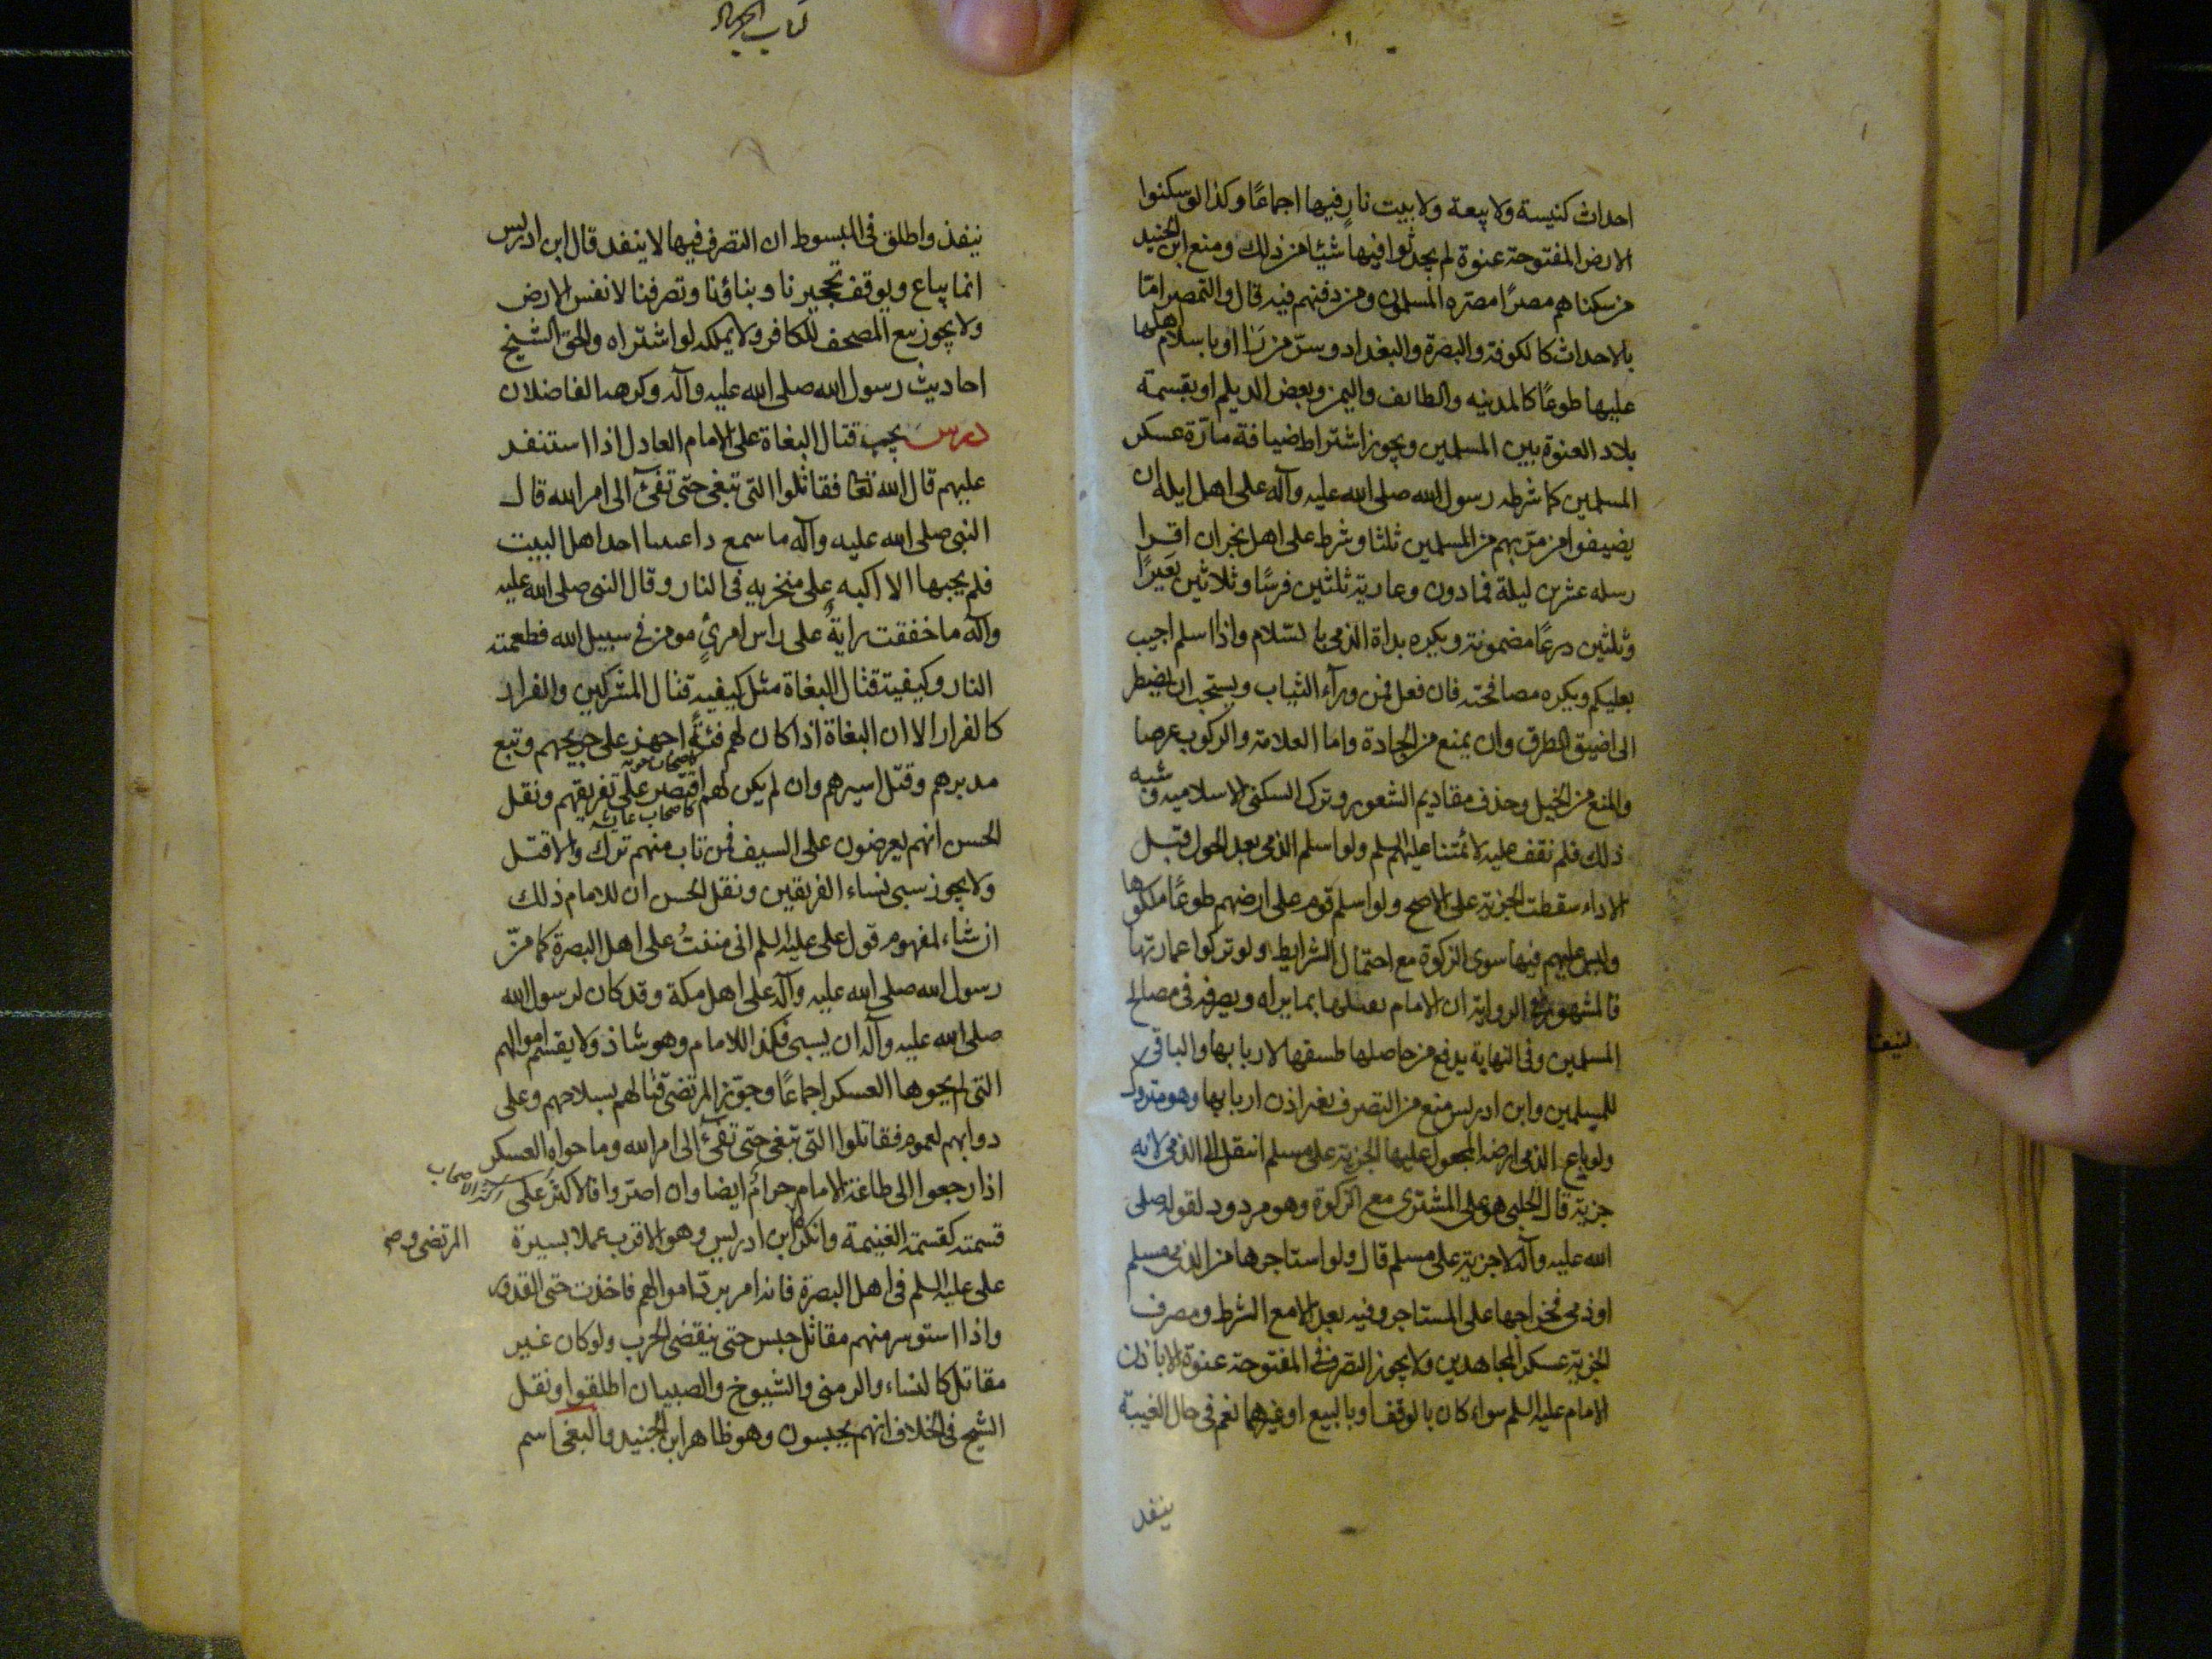 احداث كنيسة ولا بيعة ولا بيت نار فيها اجماعًا وكذا لو سكنوا
الارض المفتوحة عنوة لم يحدثوا فيها شيئا من ذلك ومنع ابن الجنيد
من سكناهم مصرًا مصره المسلمون ومن دفنهم فيه قال والتمصير امّا
بالاحداث كالكوفة والبصرة والبغداد وسرّ من رَآ او باسلام اهلها
عليها طوعًا كالمدينه والطائف واليمن وبعض الديلم او بقسمة
بلاد العنوة بين المسلمين ويجوز اشتراط ضيافة مارّة عسكر
المسلمين كما شرطه رسول الله صلى الله عليه وآله على اهل ايله ان
يضيفوا من مرّ بهم من المسلمين ثلثا وشرط على اهل نجران اقرا
رسله عشرين ليلة فما دون وعارية ثلثين فرسًا وثلاثين بعيرًا
وثلثين درعًا مضمونة ويكره بداة الذمي بالسّلام واذا سلم اجيب
بعليكم ويكره مصافحته فان فعل فمن ورآء الثياب ويستحب ان يضطر
الى اضيق الطرق وان يمنع من الجادة واما العلامة والركوب عرضا
والمنع من الخيل وحذف مقاديم الشعور وترك السكنى الاسلاميه وشبه
ذلك فلم نقف عليه لائمتنا عليهم السلم ولو اسلم الذمى بعد الحول قبل
الاداء سقطت الجزية على الاصح ولو اسلم قوم على ارضهم طوعًا ملكوها
وليس عليهم فيها سوى الزكوة مع احتمال الشرايط ولو تركوا عمارتها
فالمشهور في الرواية ان الامام يقبلها بما يراه ويصرفه في مصالح
المسلمين وفى النهاية يدفع من حاصلها طسقها لاربابها والباقى
للمسلمين وابن ادريس منع من التصرف بغير اذن اربابها وهو متروك
ولو باع الذمى ارضه المجعول عليها الجزية على مسلم انتقل الى الذمى لانه
جزية قال الحلبى هو على المشترى مع الزكوة وهو مردود لقوله صلى
الله عليه وآله لا جزية على مسلم قال ولو استاجرها من الذمى مسلم
او ذمى فخراجها على المستاجر وفيه بعد الا مع الشرط ومصرف
الجزية عسكر المجاهدين ولا يجوز التصرف فى المفتوحة عنوة الا باذن
الامام عليه السلم سواء كان بالوقف او بالبيع او غيرهما نعم فى حال الغيبة
ينفد
كتاب الجهاد
ينفذ واطلق فى المبسوط ان التصرف فيها لا ينفد قال ابن ادريس
انما يباع ويوقف تحجيرنا وبناؤنا وتصرفنا لا نفس الارض
ولا يجوز بيع المصحف للكافر ولا يملكه لو اشتراه والحق الشيخ
احاديث رسول الله صلى الله عليه وآله وكرهه الفاضلان
درس يجب قتال البغاة على الامام العادل اذا استنفد
عليهم قال الله تعا فقاتلوا التى تبغى حتى تفئ الى امر الله قال
النبى صلى الله عليه وآله ما سمع احد اهل البيت
فلم يجبها الا اكبه على منخريه فى النار وقال النبى صلى الله عليه
وآله ما خفقت راية على راس امرئٍ مومن فى سبيل الله فطعمته
النار وكيفية قتال البغاة مثل كيفية قتال المشركين والفرار
كالفرار الا ان البغاة اذا كان لهم فئةً اجهز على جريحهم وتبع
مدبرهم وقتل اسيرهم وان لم يكن لهم اقتصر على تفريقهم ونقل
كاصحاب عايشه
الحسن انهم يعرضون على السيف فمن تاب منهم ترك والا قتل
ولا يجوز سبى نساء الفريقين ونقل الحسن ان للامام ذلك
ان شاء لمفهوم قول على عليه السلم انى مننتُ على اهل البصرة كما منّ
رسول الله صلى الله عليه وآله على اهل مكة وقد كان لرسول الله
صلى الله عليه وآله ان يسبى فكذا للامام وهو شاذ ولا يقسم اموالهم
التى لم يحوها العسكر اجماعًا وجوّز المرتضى قتالهم بسلاحهم وعلى
دوابهم لعموم فقاتلوا التى تبغى حتى تفئ الى امر الله وما حواه العسكر
اذا رجعوا الى طاعة الامام حرامٌ ايضا وان اصرّوا فالاكثر على
قسمته كقسمة الغنيمة وانكره ابن ادريس وهو الاقرب عملا بسيرة
المرتضى و
على عليه السلم فى اهل البصرة فانه امر بردّ اموالهم فاخذت حتى القدور
واذا استوسر منهم مقاتل حبس حتى ينقضى الحرب ولو كان غير
مقاتل كالنساء والزمنى والشيوخ والصبيان اطلقوا ونقل
الشيخ فى الخلاف انهم يحبسون وهو ظاهر ابن الجنيد والبغى اسم